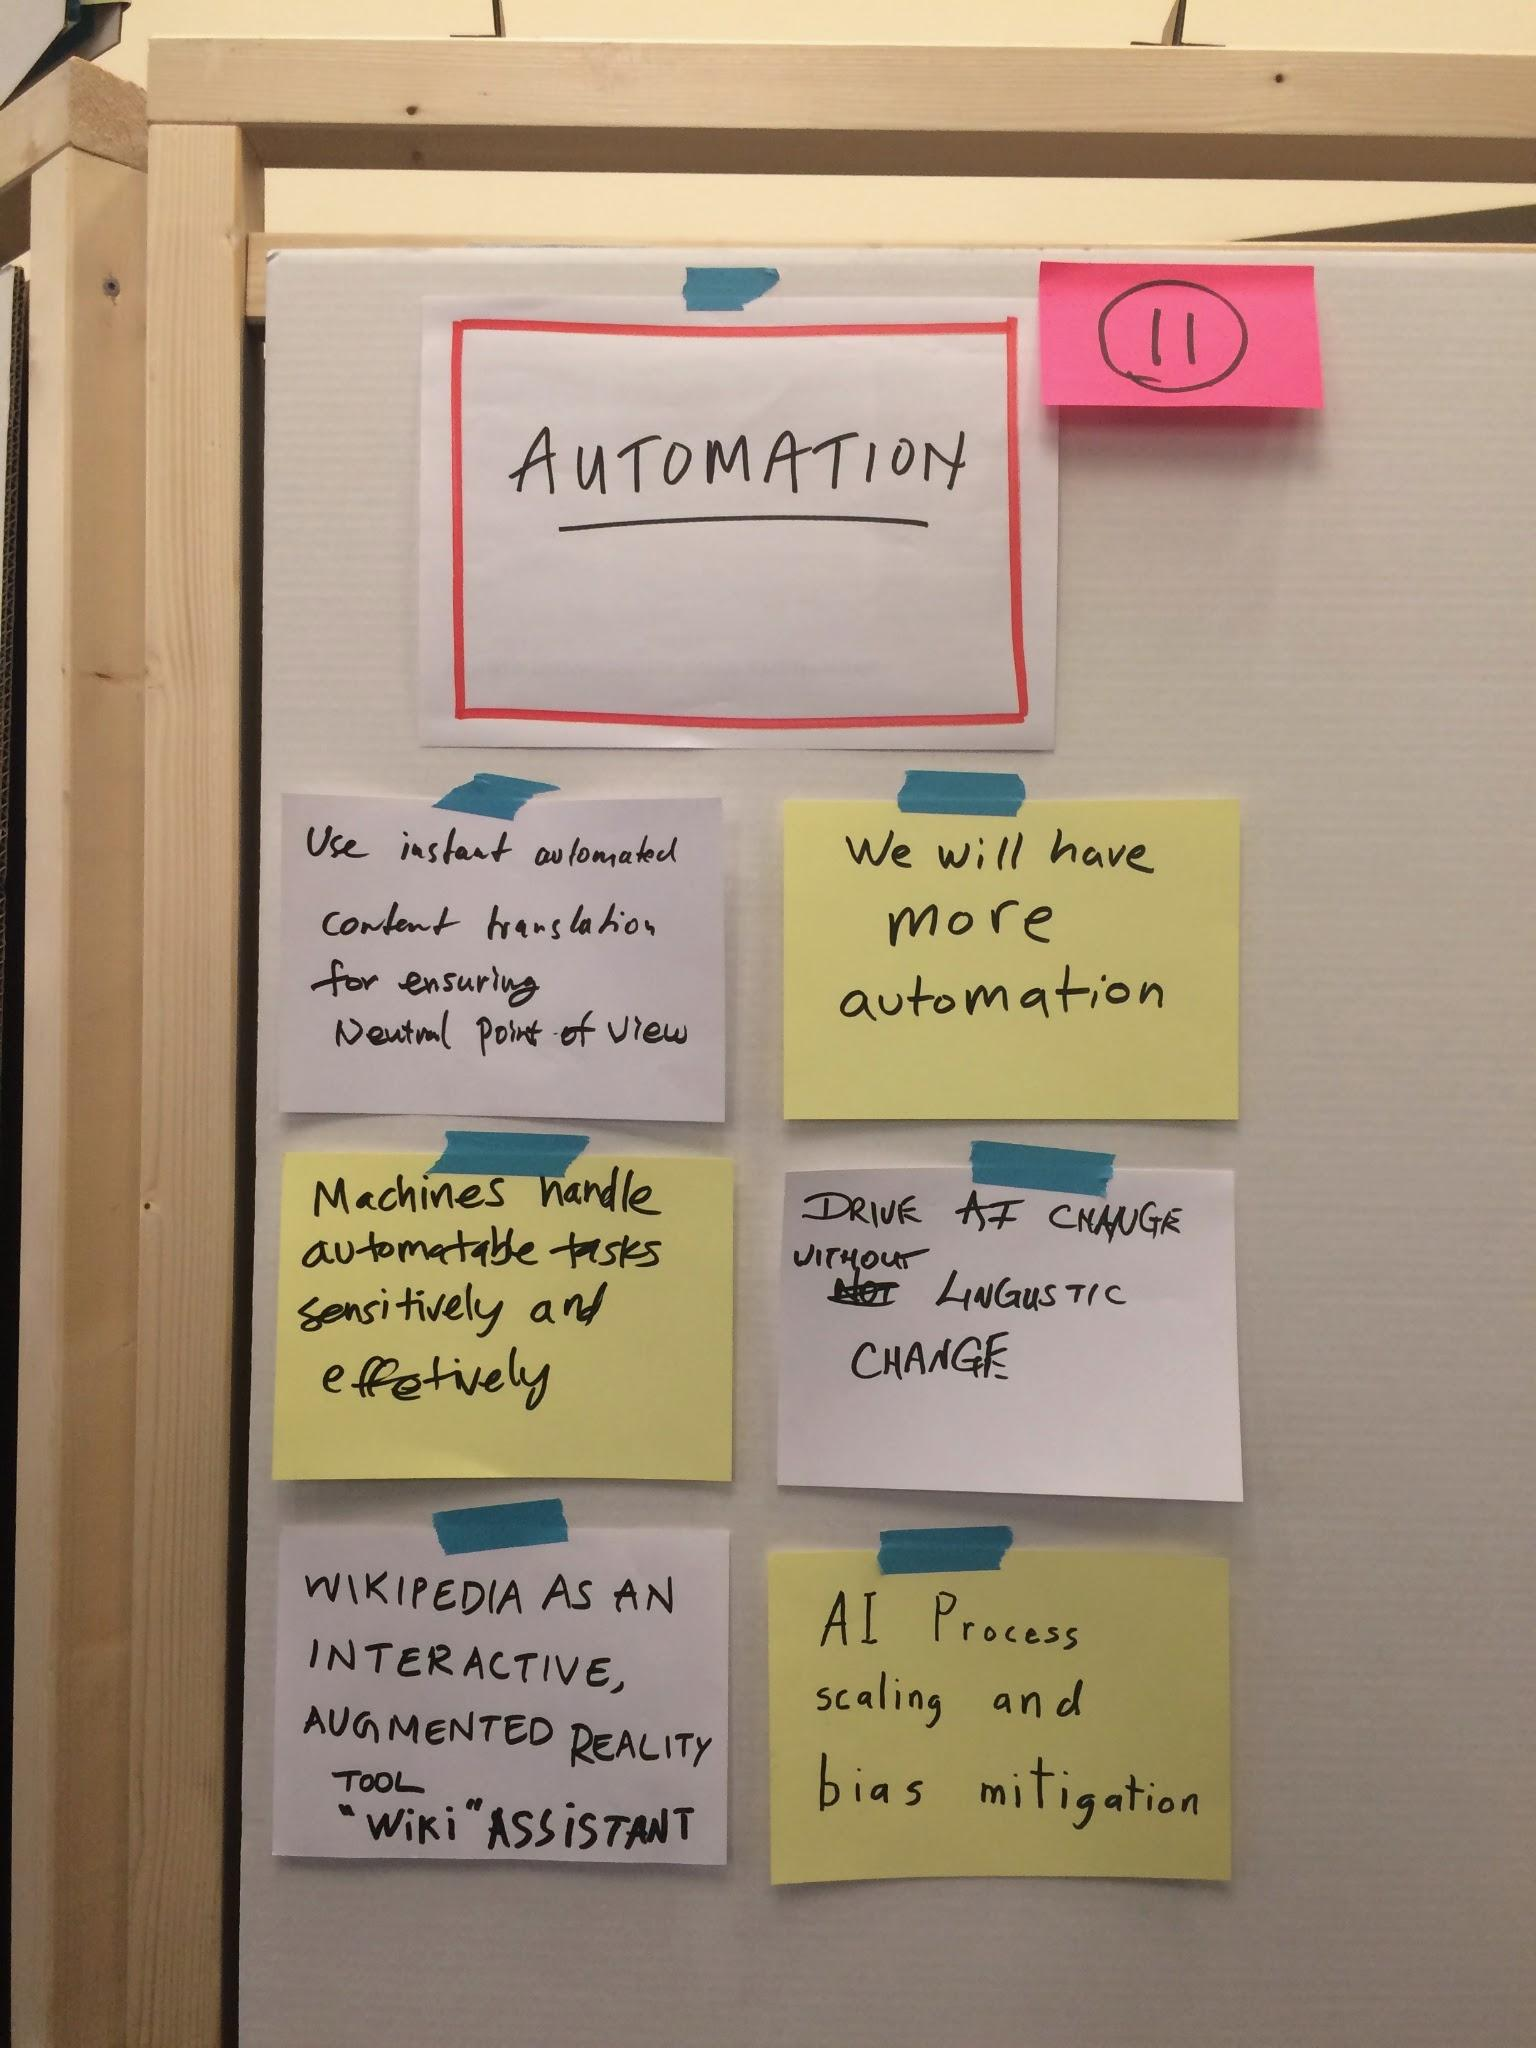 AUTOMATION
11
Use instant automated
content translation
for ensuring
Neutral point of view
We will have
more
automation
Machines handle
automatable tasks
sensitively and
effetively
DRIVE AI CHANGE
WITHOUT
NOT LINGUSTIC
CHANGE
WIKIPEDIA AS AN
INTERACTIVE,
AUGMENTED REALITY
TOOL
"Wiki" ASSiSTANT
AI Process
scaling and
bias mitigation